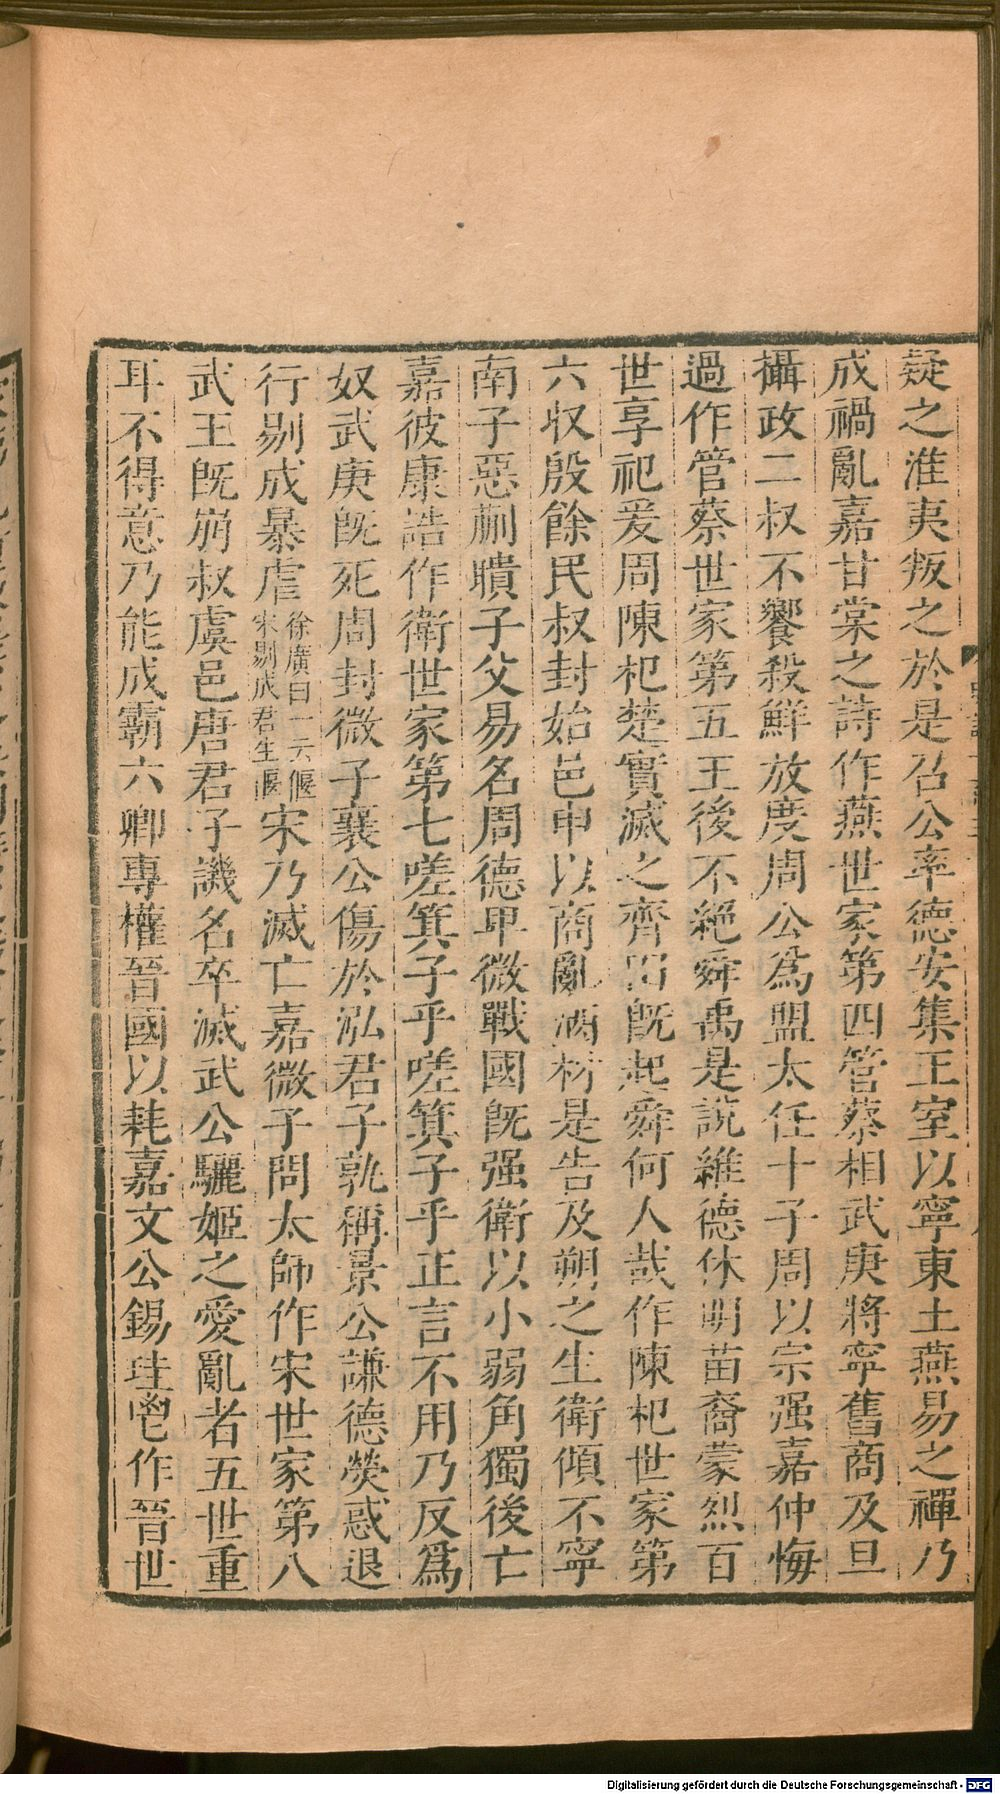 疑之淮夷叛之於是召公率德安集王室以寧東土燕易之禪乃
成禍亂嘉甘棠之詩作燕世家第四管蔡相武庚將寧舊商及旦
攝政二叔不饗殺鮮放度周公爲盟太任十子周以宗强嘉仲悔
過作管蔡世家第五王後不絕舜禹是說維德休明苗裔蒙烈百
世享祀爰周陳杞楚實滅之齊田既起舜何人哉作陳杞世家第
六收殷餘民叔封始邑申以商亂酒材是告及朔之生衛傾不寧
南子惡蒯聵子父易名周德卑微戰國既强衛以小弱角獨後亡
嘉彼康誥作衛世家第七嗟箕子乎嗟箕子乎正言不用乃反爲
奴武庚既死周封微子襄公傷於泓君子孰稱景公謙德熒惑退
行剔成暴虐徐廣曰一云偃宋剔成君生偃宋乃滅亡嘉微子問太師作宋世家第八
武王既崩叔虞邑唐君子譏名卒滅武公驪姬之愛亂者五世重
耳不得意乃能成霸六卿專權晉國以耗嘉文公錫珪鬯作晉世
Digitalisierung gefördert durch die Deutsche Forschungsgemeinschaft - DFG